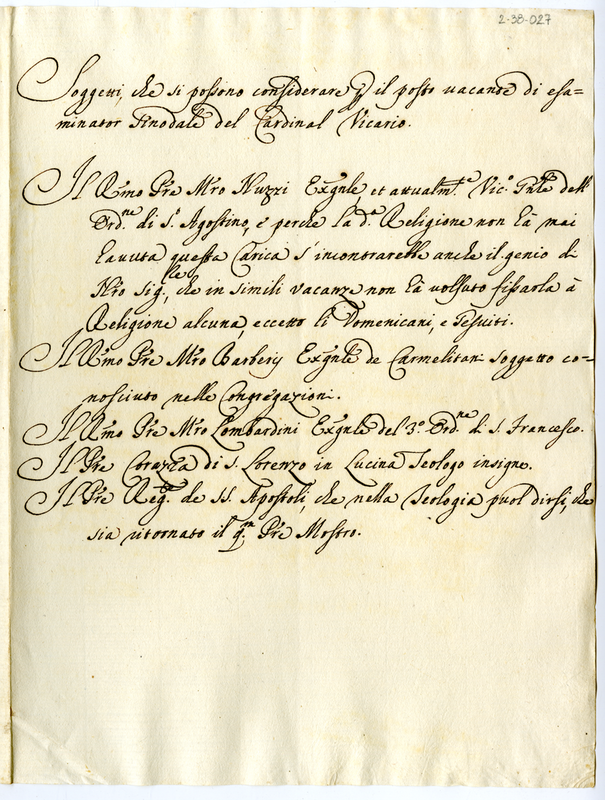 2-38-027
Soggetti, che si possono considerare p il posto vacante di esa=
minator Sinodale del Cardinal Vicario.
Il Rmo Pre Mro Nuzzi Exgnle, et attualmte Vico Gnle dell'
Ordne di S. Agostino, e perche la da Religione non hà mai
havuta questa Carica s'incontrarebbe anche il genio di
Nro Sigre, che in simili vacanze non hà volsuto fissarla à
Religione alcuna, eccetto li Domenicani, e Gesuiti.
Il Rmo Pre Mro Barberij Exgnle de Carmelitani soggetto co=
nosciuto nelle Congregazioni.
Il Rmo Pre Mro Lombardini Exgnle del 3o Ordne di S. Francesco.
Il Pre Corazza di S. Lorenzo in Lucina Teologo insigne.
Il Pre Regte de SS. Apostoli, che nella Teologia puol dirsi, che
sia ritornato il qm Pre Mostro.